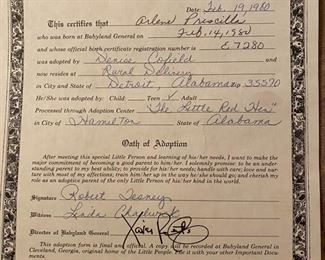 Date: Feb. 19, 1980
This certifies that Arlene Priscilla
who was born at Babyland General on Feb. 14, 1980
and whose official birth certificate registration number is E7280
was adopted by Denice Cofield
and now resides at Rural Delivery
in City and State of Detroit, Alabama, 35570
He/She was adopted by: Child: Teen ✓ Adult
Processed through Adoption Center "The Little Red Hen"
in City of Hamilton State of Alabama
Oath of Adoption
After meeting this special Little Person and learning of his/her needs, I want to make the
major commitment of becoming a good parent to him. I solemnly promise: to be an under-
standing parent to my best ability; to provide for his/her needs; handle with care; love and nur-
ture with most of my affection; train him/her up in the way we should go; and cherish my
role as adoptive parent of the only Little Person of his/her kind in the world.
Signature Robert Tesney
Witness Linda
Director of Babyland General
This adoption form is final and official. A copy will be recorded at Babyland General in
Cleveland, Georgia, original home of the Little People. File it with your other Important Docu-
ments.